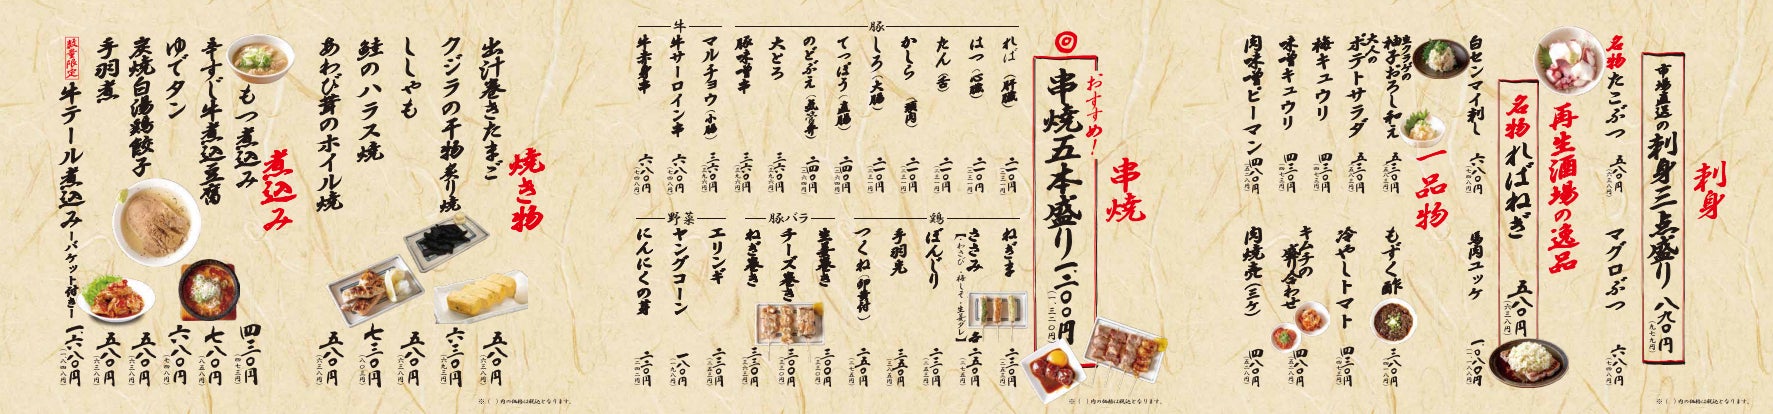 刺身
市場直送の刺身三点盛り 八九〇円(九七九円)
名物たこぶつ 五八〇円(六三八円)
マグロぶつ 六八〇円(七四八円)
再生酒場の逸品
名物ればねぎ 五八〇円(六三八円)
白センマイ刺し 六八〇円(七四八円)
馬肉ユッケ 一、〇八〇円
一品物
生クラゲの柚子おろし和え 五三〇円(五八三円)
大人のポテトサラダ 五三〇円(五八三円)
梅キュウリ 四三〇円(四七三円)
味噌キュウリ 四三〇円(四七三円)
肉味噌ピーマン 四八〇円(五二八円)
もずく酢 三八〇円(四一八円)
冷やしトマト 四三〇円(四七三円)
キムチの盛り合わせ 四八〇円(五二八円)
肉焼売(三ケ) 四八〇円(五二八円)
※( )内の価格は税込となります。
串焼
おすすめ!
串焼五本盛り 一、二〇〇円(一、三二〇円)
豚
れば(肝臓) 二一〇円(二三一円)
はつ(心臓) 二一〇円(二三一円)
たん(舌) 二一〇円(二三一円)
かしら(頭肉) 二一〇円(二三一円)
しろ(大腸) 二一〇円(二三一円)
てっぽう(直腸) 二四〇円(二六四円)
のどぶえ 二四〇円(二六四円)
大とろ 三六〇円(三九六円)
豚味噌串 三六〇円(三九六円)
牛
マルチョウ(小腸) 三六〇円(三九六円)
牛サーロイン串 六八〇円(七四八円)
牛赤身串 六八〇円(七四八円)
鶏
ねぎま 二三〇円(二五三円)
ささみ【わさび・梅しそ・生姜ダレ】 各二五〇円(二七五円)
ぼんじり 二三〇円(二五三円)
手羽先 二五〇円(二七五円)
つくね(卵黄付) 二五〇円(二七五円)
豚バラ
生姜巻き 三三〇円(三六三円)
チーズ巻き 三三〇円(三六三円)
ねぎ巻き 三三〇円(三六三円)
野菜
エリンギ 二三〇円(二五三円)
ヤングコーン 一八〇円(一九八円)
にんにくの芽 二二〇円(二四二円)
※( )内の価格は税込となります。
焼き物
出汁巻きたまご 五八〇円(六三八円)
クジラの干物炙り焼 六三〇円(六九三円)
ししゃも 五八〇円(六三八円)
鮭のハラス焼 七三〇円(八〇三円)
あわび茸のホイル焼 五八〇円(六三八円)
煮込み
もつ煮込み 四三〇円(四七三円)
辛すじ牛煮込豆腐 七八〇円(八五八円)
ゆでタン 六八〇円(七四八円)
炭焼白湯鶏餃子 五八〇円(六三八円)
手羽煮 五八〇円(六三八円)
数量限定
牛テール煮込み ーバケット付きー 一、六八〇円(一、八四八円)